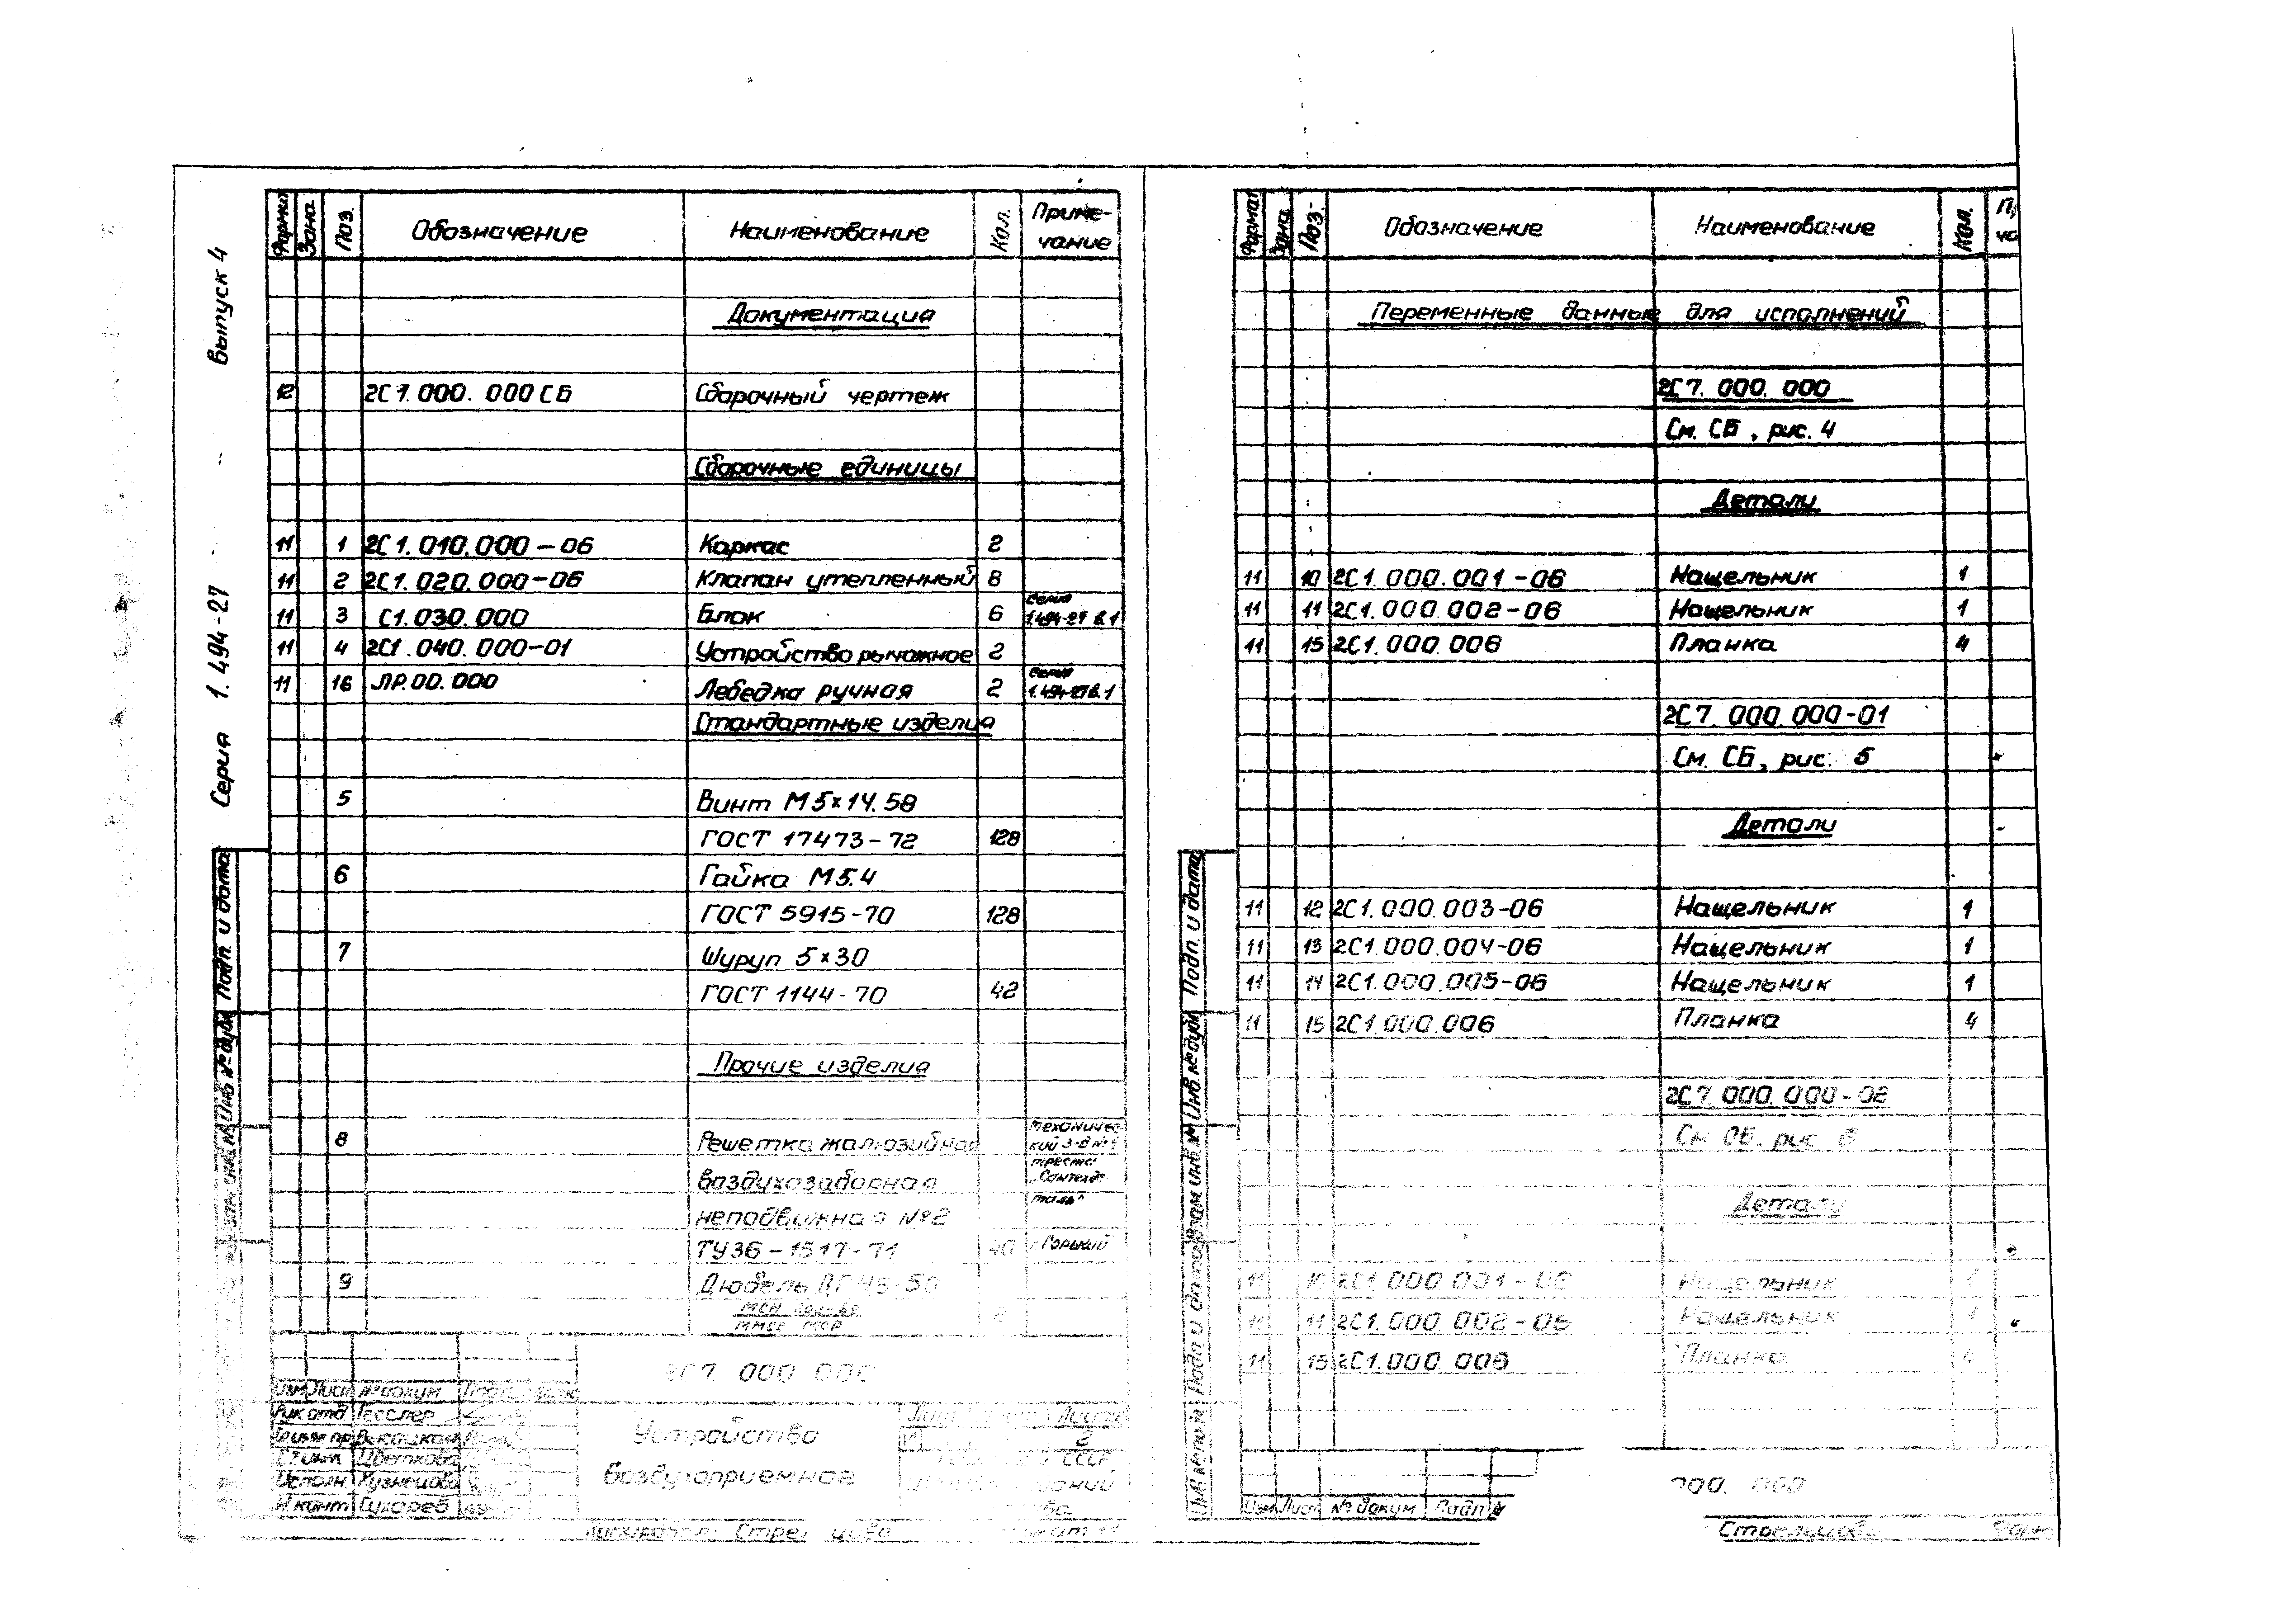 Серия 1.494-27 Выпуск 4
Формат Зона Поз. Обозначение Наименование Кол. Приме-чание
Документация
12 2С7.000.000СБ Сборочный чертеж
Сборочные единицы
11 1 2С1.010.000-06 Каркас 2
11 2 2С1.020.000-06 Клапан утепленный 8
11 3 С1.030.000 Блок 6 Серия 1.494-27 в.1
11 4 2С1.040.000-01 Устройство рычажное 2
11 16 ЛР.00.000 Лебедка ручная 2 Серия 1.494-27 в.1
Стандартные изделия
5 Винт М5х14.58
ГОСТ 17473-72 128
6 Гайка М5.4
ГОСТ 5915-70 128
7 Шуруп 5х30
ГОСТ 1144-70 42
Прочие изделия
8 Решетка жалюзийная механичес-кий з-д №1
воздухозаборная треста "Сантехде-
неподвижная №2 таль"
ТУ36-1517-71 40 г. Горький
9 Дюбель
ММСС СССР
2С7.000.000
Изм Лист № докум Подп.
Рук отд Гесслер
Ст инж Цветкова
Исполн Кузнецова
Н. конт Сухарев
Устройство
воздухоприемное
Лист Листов
2
СССР
Копировал: Стрельцова
Формат 11
Подп. и дата
Инв. № дубл
Взам. инв. №
Формат Зона Поз. Обозначение Наименование Кол.
Переменные данные для исполнений
2С7.000.000
См. СБ, рис. 4
Детали
11 10 2С1.000.001-06 Нащельник 1
11 11 2С1.000.002-06 Нащельник 1
11 15 2С1.000.006 Планка 4
2С7.000.000-01
См. СБ, рис. 5
Детали
11 12 2С1.000.003-06 Нащельник 1
11 13 2С1.000.004-06 Нащельник 1
11 14 2С1.000.005-06 Нащельник 1
11 15 2С1.000.006 Планка 4
2С7.000.000-02
См СБ. рис 6
Детали
11 10 2С1.000.001-06 Нащельник 1
11 11 2С1.000.002-06 Нащельник 1
11 15 2С1.000.006 Планка 4
Подп. и дата
Инв. № дубл
Взам инв. №
Подп и дата
Инв № подл
Изм Лист № докум Подп
000.000
Стрельцова